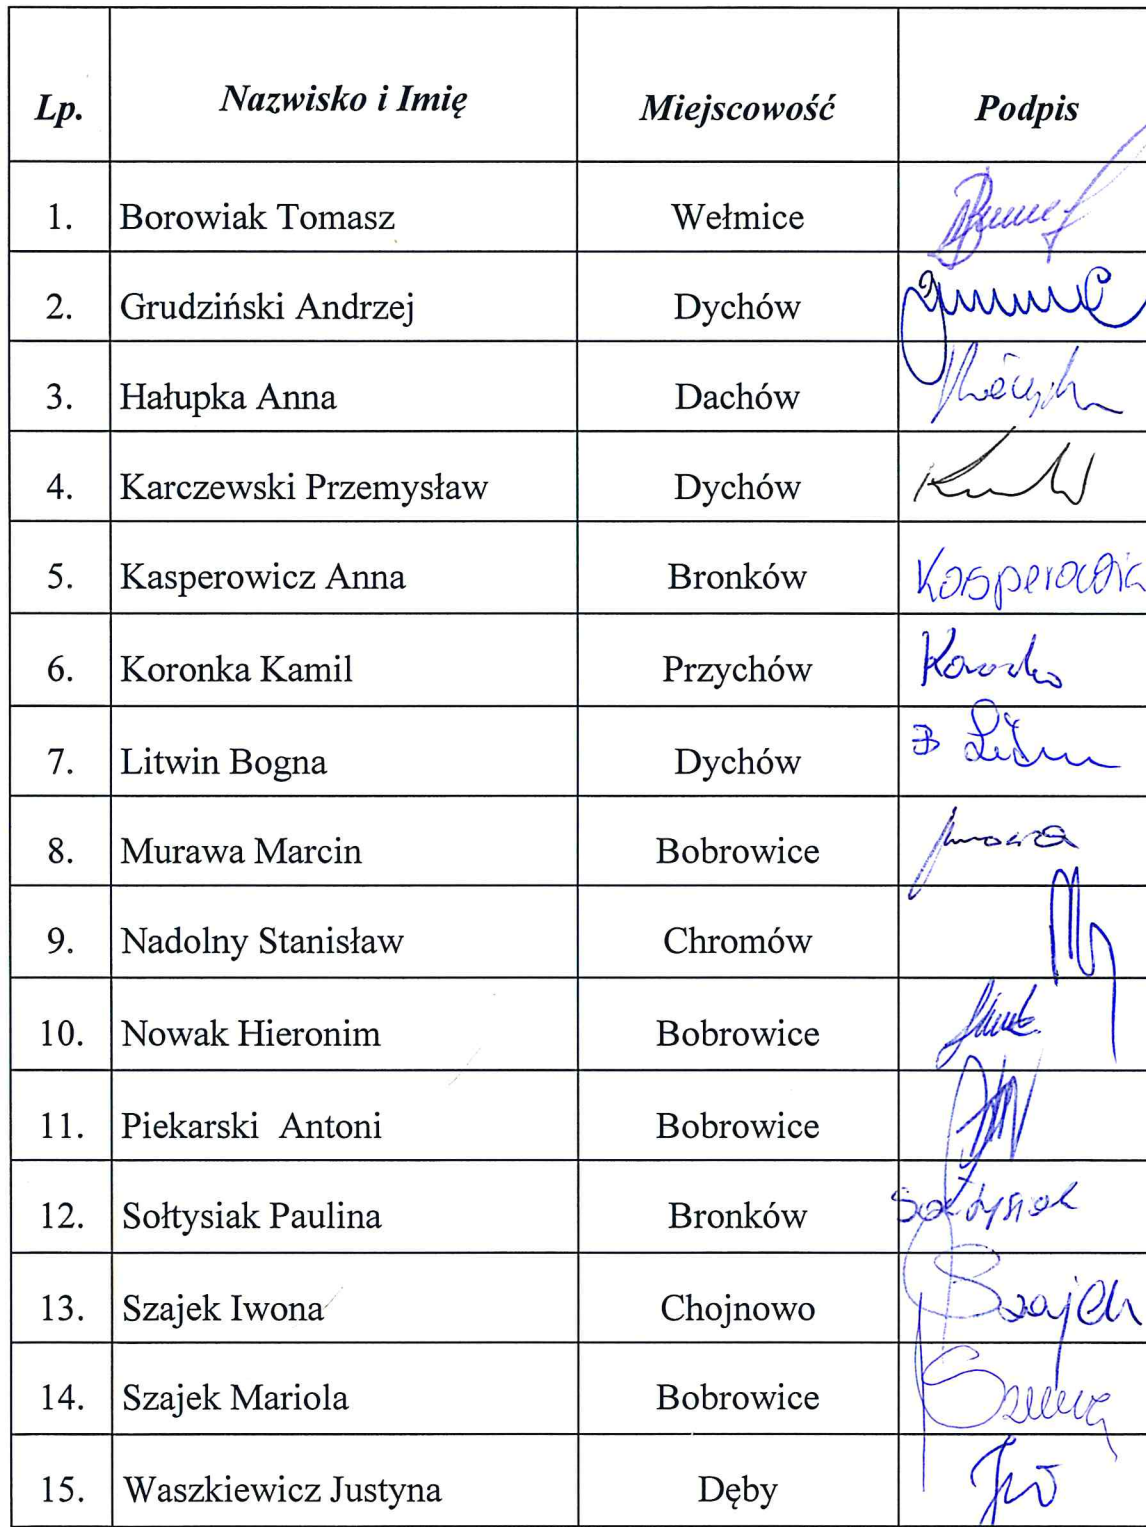 Lp. Nazwisko i Imię Miejscowość Podpis
1. Borowiak Tomasz Wełmice
2. Grudziński Andrzej Dychów
3. Hałupka Anna Dachów
4. Karczewski Przemysław Dychów
5. Kasperowicz Anna Bronków Kasperowic
6. Koronka Kamil Przychów
7. Litwin Bogna Dychów
8. Murawa Marcin Bobrowice
9. Nadolny Stanisław Chromów
10. Nowak Hieronim Bobrowice
11. Piekarski Antoni Bobrowice
12. Sołtysiak Paulina Bronków Sołtysiak
13. Szajek Iwona Chojnowo Szajek
14. Szajek Mariola Bobrowice
15. Waszkiewicz Justyna Dęby